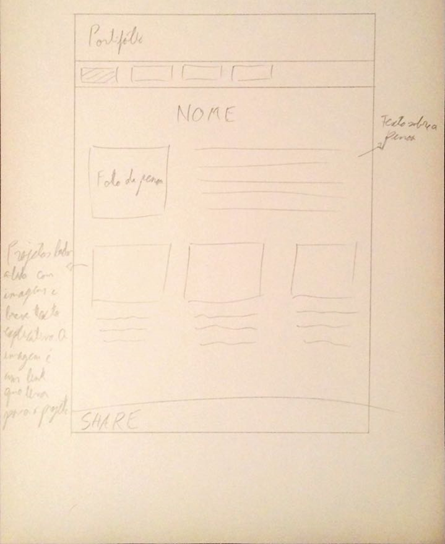 Portifólio
NOME
Texto sobre a
pessoa
Foto da pessoa
Projetos lado
a lado com
imagem e
breve texto
explicativo. A
imagem é
um link
que leva
para o projeto
SHARE